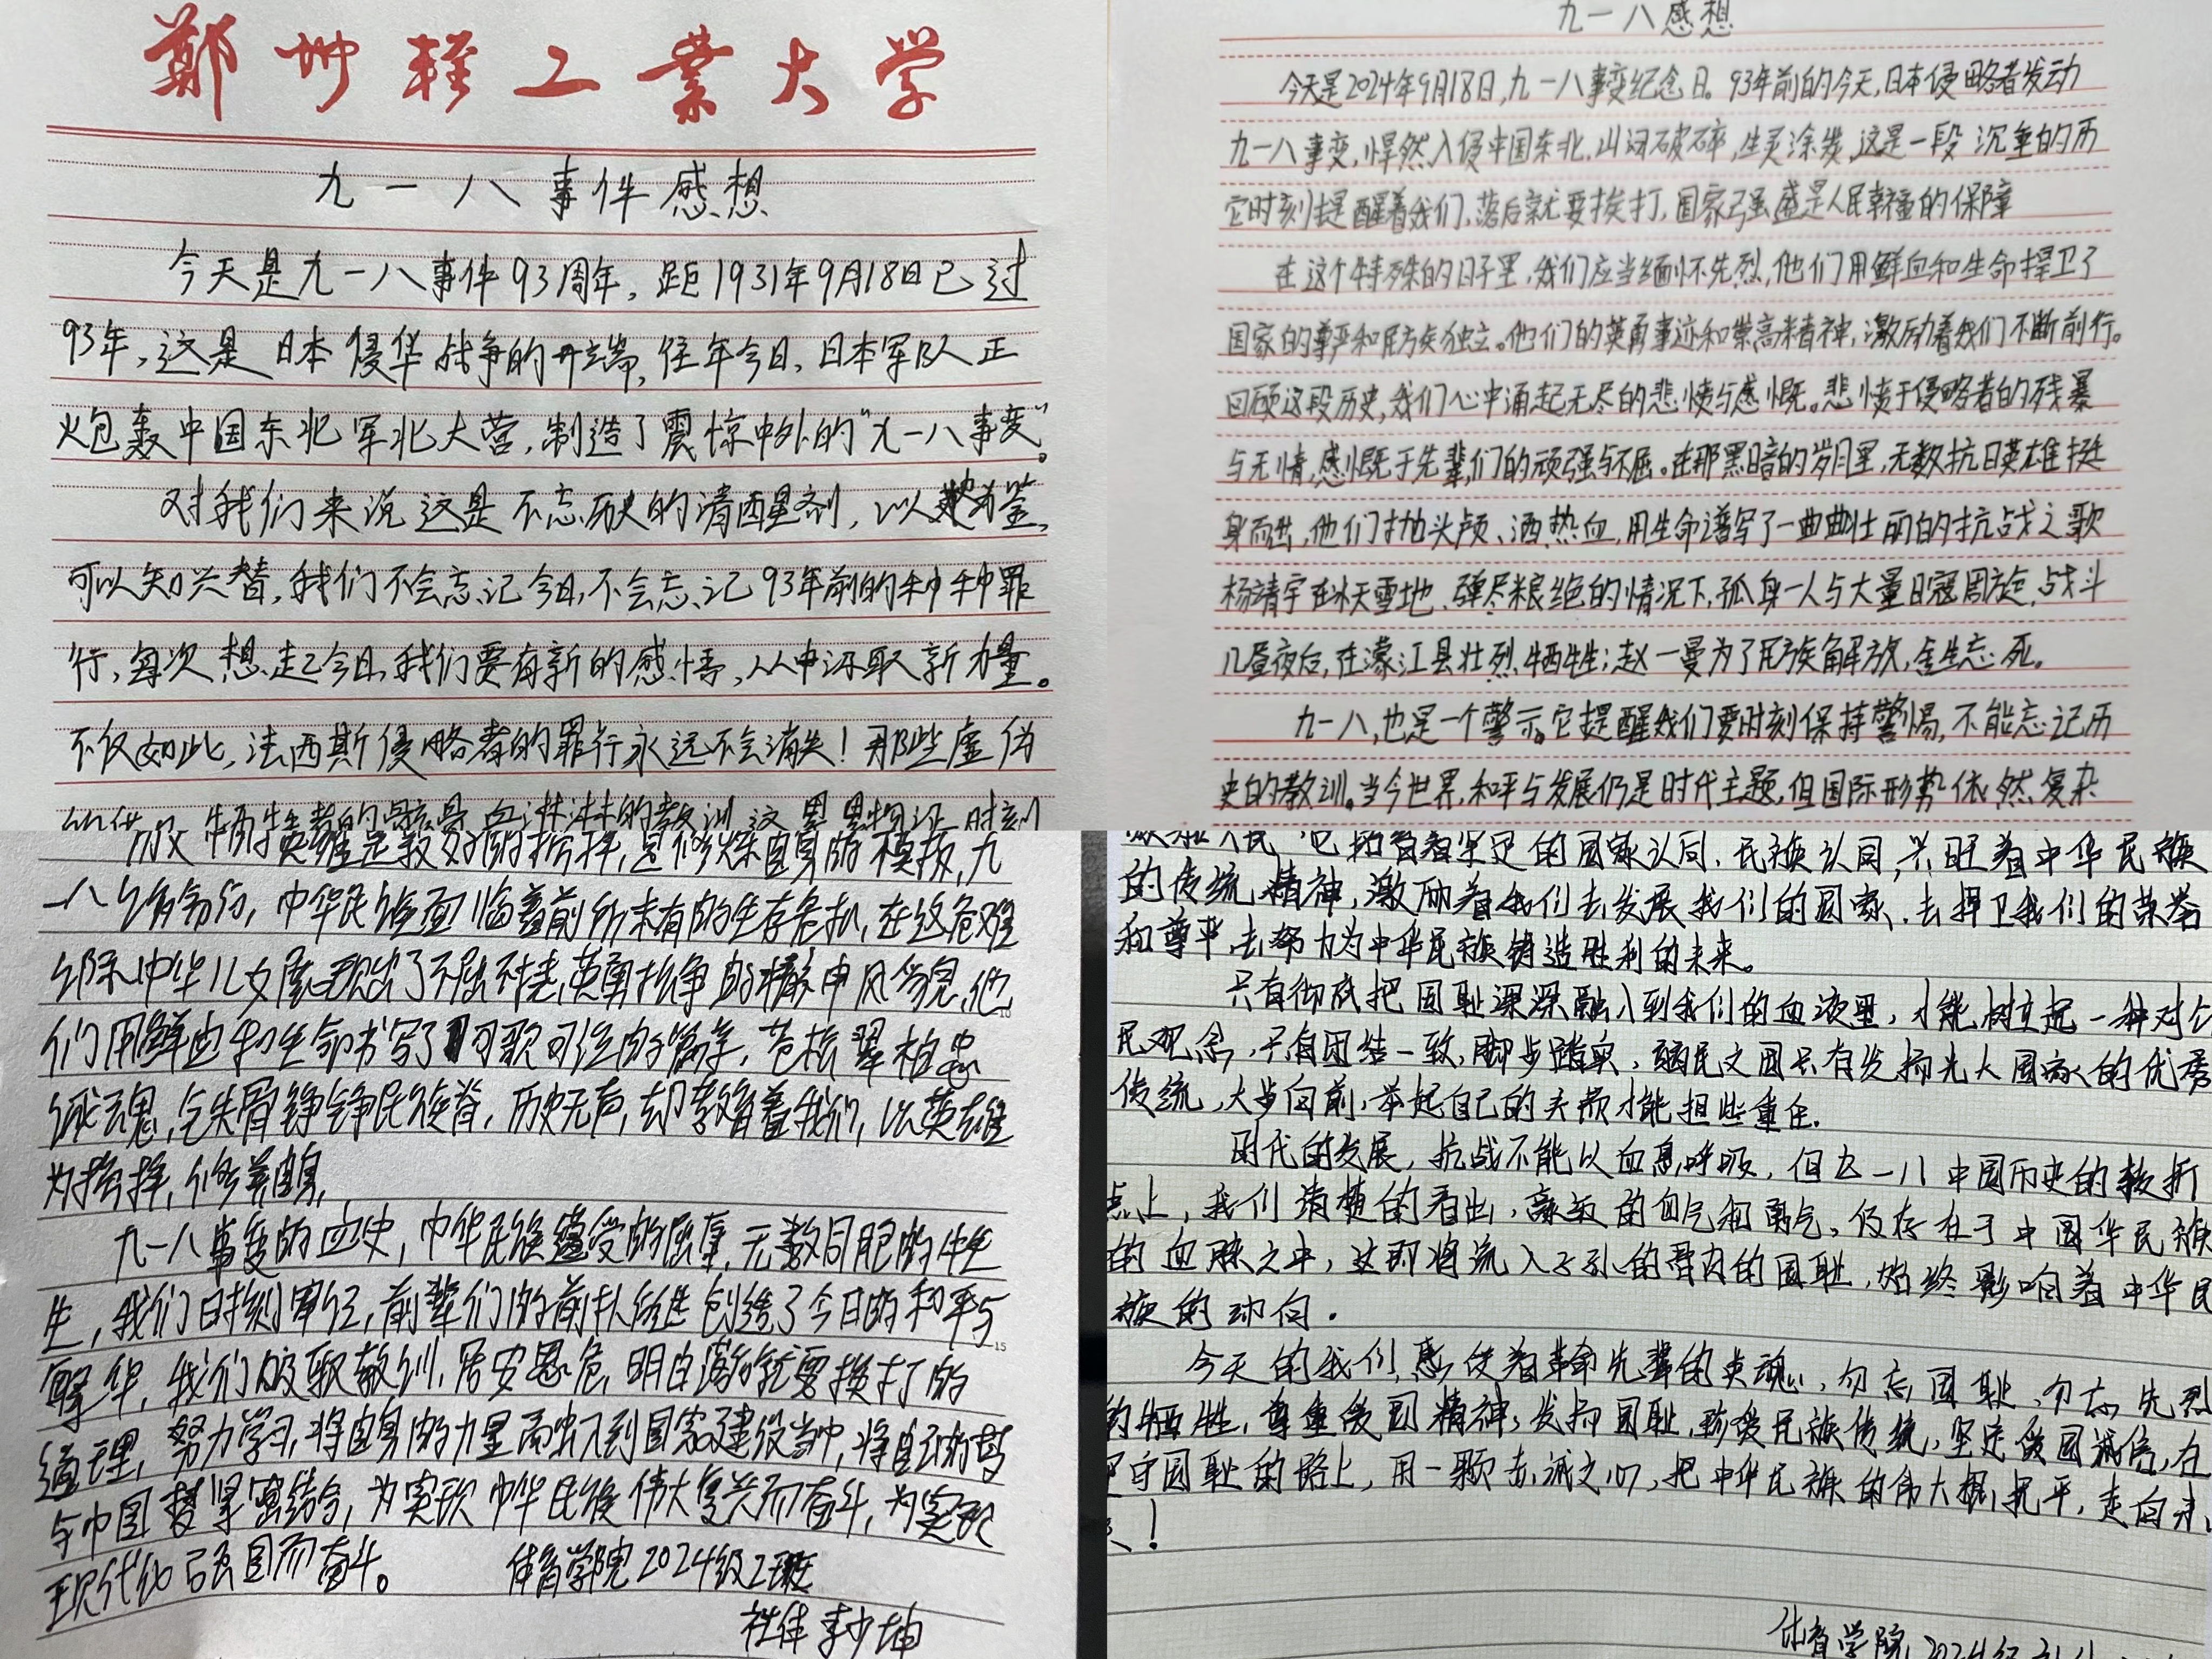 鄭州輕工業大學
九一八事件感想
今天是九一八事件93周年，距1931年9月18日已过
93年，这是日本侵华战争的开端，往年今日，日本军队正
炮轰中国东北军北大营，制造了震惊中外的“九一八事变”。
对我们来说这是不忘历史的清醒剂，以史为鉴，
可以知兴替，我们不会忘记今日，不会忘记93年前的种种罪
行，每次想起今日，我们要有新的感悟，从中汲取新力量。
不仅如此，法西斯侵略者的罪行永远不会消失！那些虚伪
九一八感想
今天是2024年9月18日，九一八事变纪念日。93年前的今天，日本侵略者发动
九一八事变，悍然入侵中国东北，山河破碎，生灵涂炭，这是一段沉重的历
它时刻提醒着我们，落后就要挨打，国家强盛是人民幸福的保障
在这个特殊的日子里，我们应当缅怀先烈，他们用鲜血和生命捍卫了
国家的尊严和民族独立。他们的英勇事迹和崇高精神，激励着我们不断前行。
回顾这段历史，我们心中涌起无尽的悲愤与感慨。悲愤于侵略者的残暴
与无情，感慨于先辈们的顽强与不屈。在那黑暗的岁月里，无数抗日英雄挺
身而出，他们抛头颅、洒热血，用生命谱写了一曲曲壮丽的抗战之歌
杨靖宇在冰天雪地、弹尽粮绝的情况下，孤身一人与大量日寇周旋，战斗
几昼夜后，在濛江县壮烈牺牲；赵一曼为了民族解放，舍生忘死。
九一八，也是一个警示。它提醒我们要时刻保持警惕，不能忘记历
史的教训。当今世界，和平与发展仍是时代主题，但国际形势依然复杂
中华民族面临着前所未有的生存危机，在这危难
之际，中华儿女展现出了不屈不挠，英勇抗争的精神风貌，他
们用鲜血和生命书写了可歌可泣的篇章，苍松翠柏忠
诚魂，铮铮民族脊，历史无声，却教育着我们，以英雄
为榜样，修养自身，
九一八事变的血史，中华民族遭受的屈辱，无数同胞的牺
牲，我们时刻牢记，前辈们的前扑后继创造了今日的和平与
繁华，我们吸取教训，居安思危，明白落后就要挨打的
道理，努力学习，将自身的力量融入到国家建设当中，将自己的梦
与中国梦紧密结合，为实现中华民族伟大复兴而奋斗，为实现
现代化强国而奋斗。
体育学院2024级2班
社体 李少坤
着坚定的国家认同，民族认同，兴旺着中华民族
的传统精神，激励着我们去发展我们的国家，去捍卫我们的荣誉
和尊严，去努力为中华民族铸造胜利的未来。
只有彻底把国耻深深融入到我们的血液里，才能树立起一种对
民观念，只有团结一致，脚步踏实，只有发扬光大国家的优秀
传统，大步向前，举起自己的头颅才能担些重任。
时代的发展，抗战不能以血息呼吸，但九一八中国历史的转折
点上，我们清楚的看出，的血气和勇气，仍存在于中国华民族
的血脉之中，这即将流入子孙的骨肉的国耻，始终影响着中华民
族的动向。
今天的我们，着革命先辈的英魂，勿忘国耻，勿忘先烈
的牺牲，尊重爱国精神，发扬国耻，珍爱民族传统，坚定爱国诚信，在
守国耻的路上，用一颗赤诚之心，把中华民族的伟大，走向未
！
体育学院